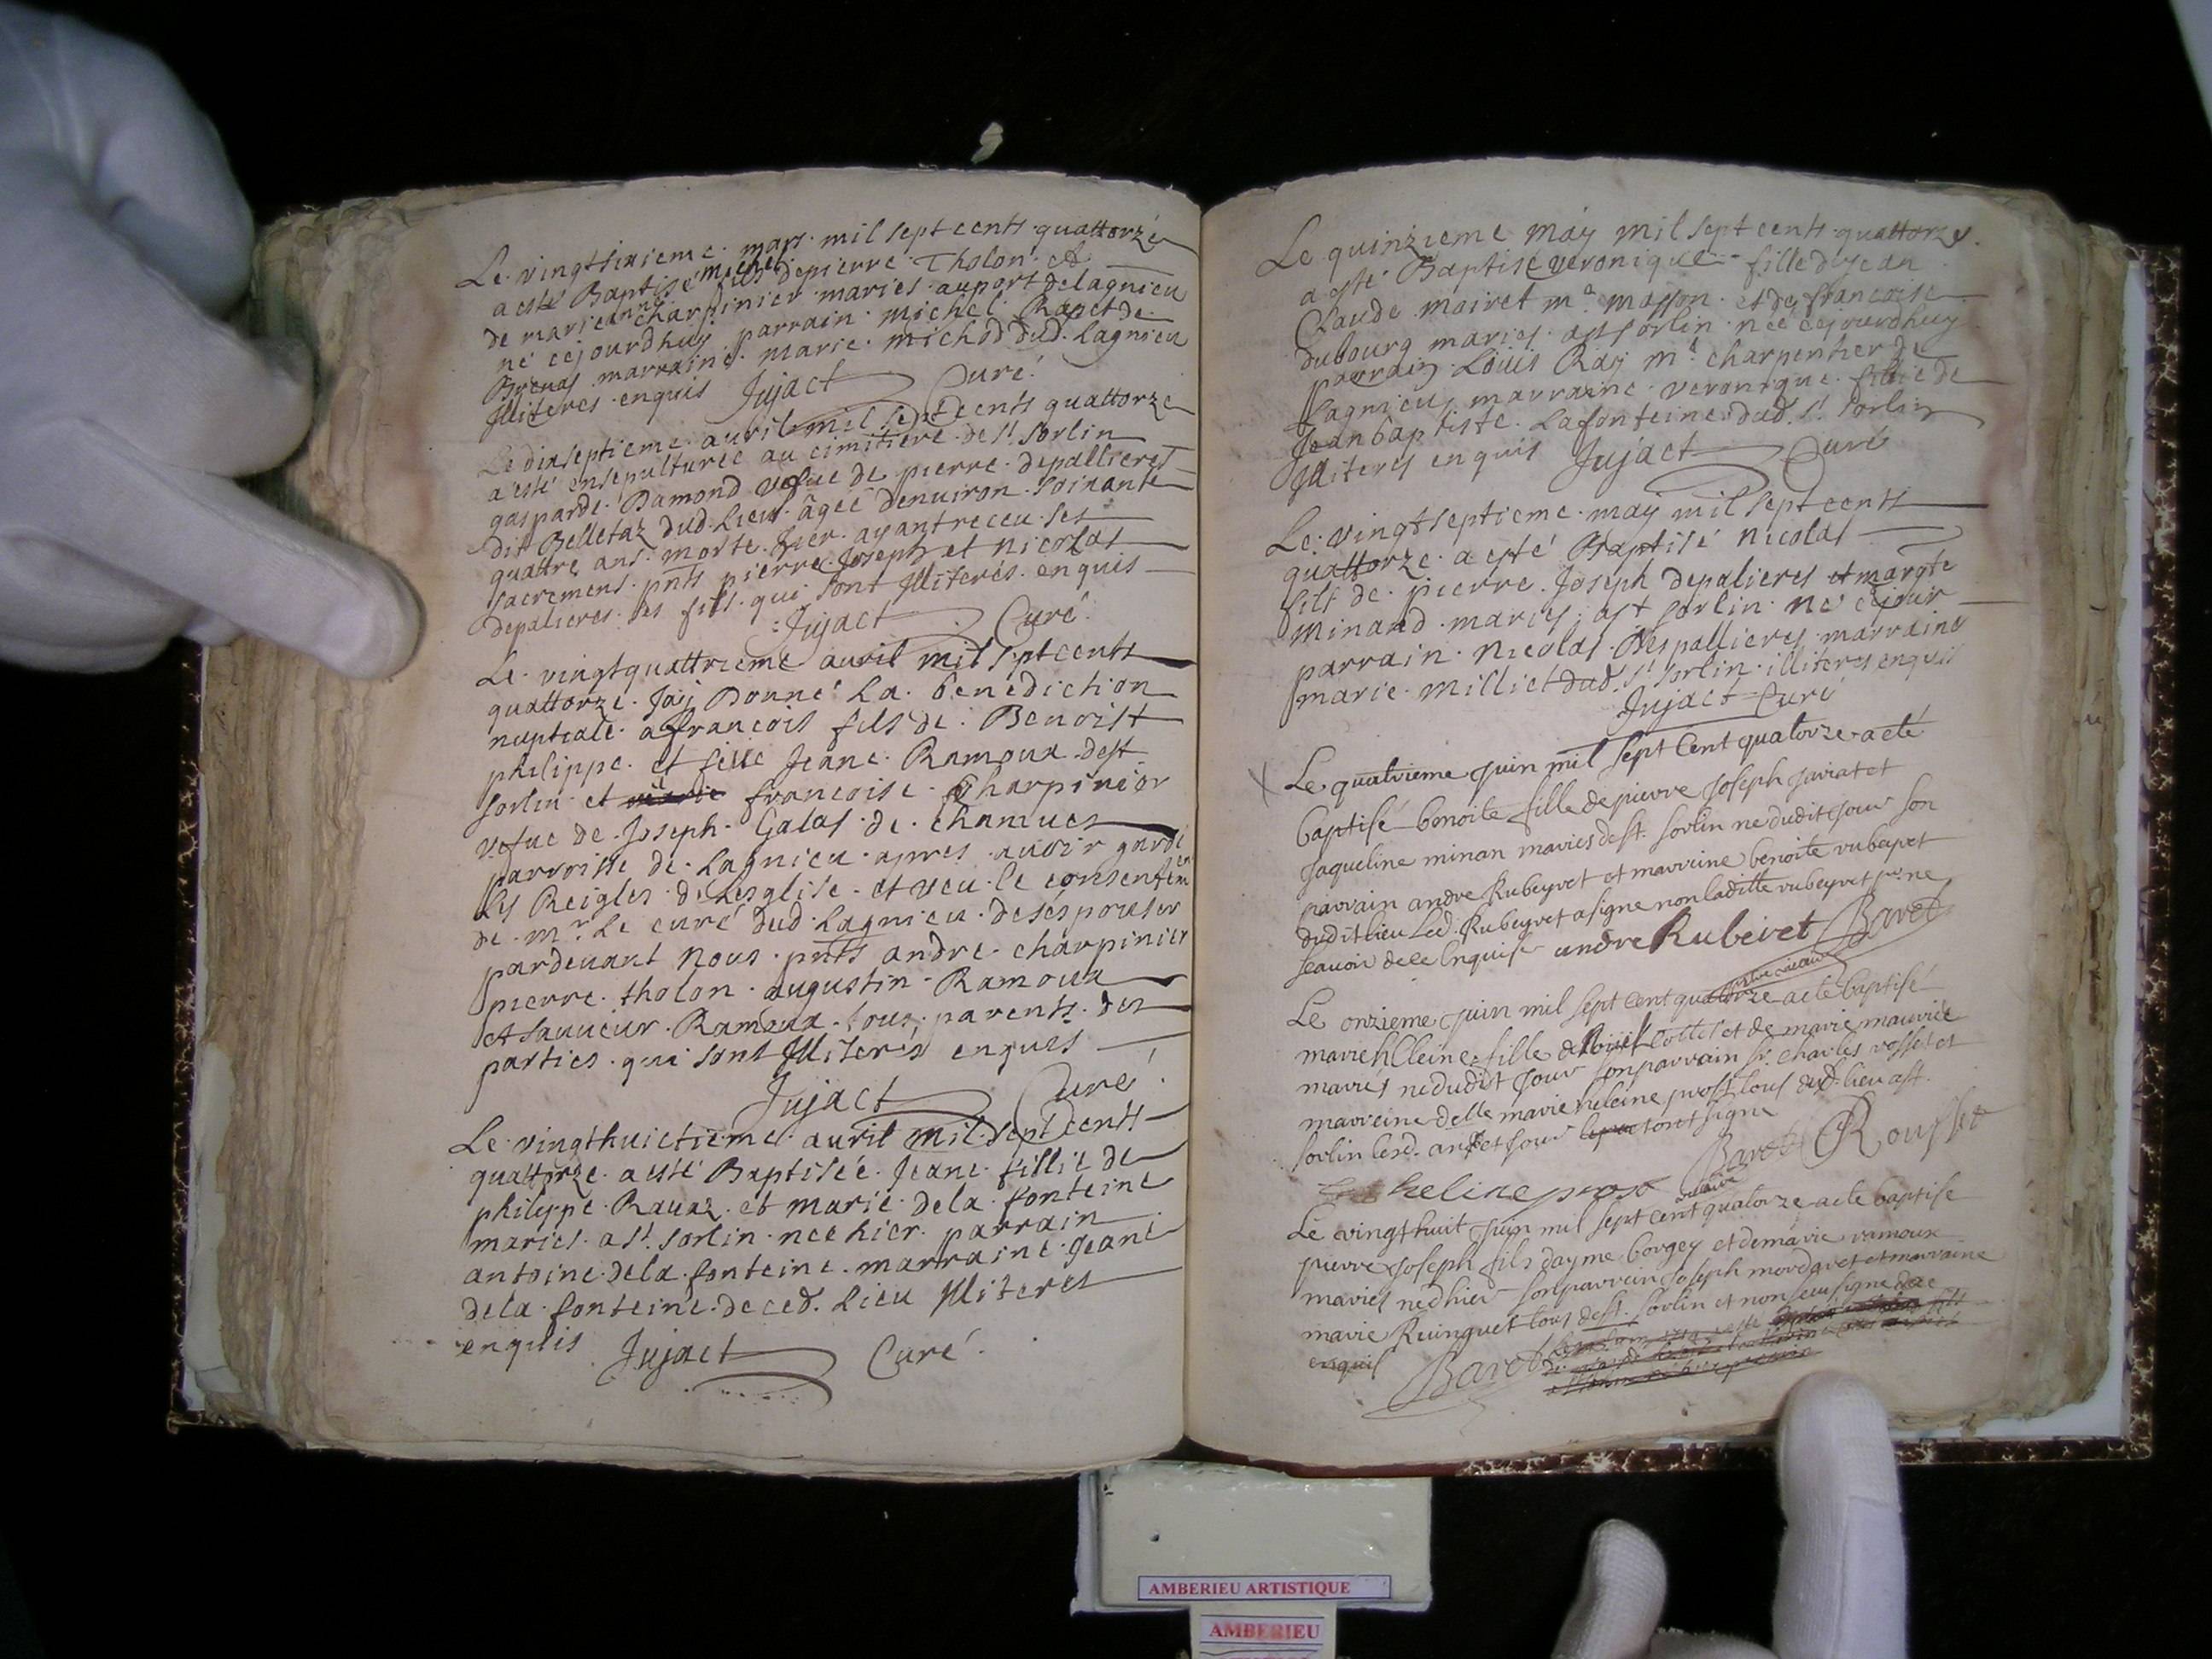 Le vingtsixieme mars mil sept cents quattorze
a esté Baptisé michel fils de pierre Tholon et
de marie anne charpinier mariés au port de lagnieu
né cejourdhuy parrain michel Rapet de
Brenas marraine marie michod dud. Lagnieu
Jlliteres enquis Jujact Curé
Le dixseptieme auril mil sept cents quattorze
a esté ensepulturée au cimitiere de st Sorlin
gasparde Damond vefue de pierre depallieres
dit Belletaz dud. Lieu âgée denuiron soixante
quattre ans morte hier ayant receu ses
sacremens pnts pierre Joseph et nicolas
depalieres ses fils qui sont Jlliterés enquis
Jujact Curé
Le vingtquattrieme auril mil sept cents
quattorze Jay Donné La benediction
nuptiale a francois fils de Benoist
philippe et feüe Jeane Ramoux de st
Sorlin et marie francoise Charpinier
vefue de Joseph Galas de chanues
parroisse de Lagnieu apres auoir gardé
les Reigles de Lesglise et veu le consentem
ent
de mr Le curé dud Lagnieu de sespouser
pardeuant nous pnts andre charpinier
pierre tholon augustin Ramoux
et sauueur Ramoux tous parents des
parties qui sont Jlliterés enquis
Jujact Curé
Le vingthuictieme auril mil sept cents
quattorze a esté Baptisée Jeane fillie de
philippe Rauaz et marie dela fonteine
mariés a st Sorlin née hier parrain
antoine dela fonteine marraine Jeane
dela fonteine de ced. Lieu Jlliteres
enquis Jujact Curé
Le quinzieme máy mil sept cents quattorze
a esté Baptisé veronique fille de Jean
Claude moiret me masson et de francoise
dubourg mariés a st sorlin née cejourdhuy
parrain Loüis Ray me charpentier de
Lagnieu marraine veronique fillie de
Jean baptiste Lafonteine dud. st Sorlin
Jlliterés enquis Jujact Curé
Le vingtseptieme may mil sept cents
quattorze a esté Baptisé nicolas
fils de pierre Joseph depalieres et margte
minand mariés a st sorlin né cejour
parrain nicolas Despallieres marraine
marie milliet dud. st Sorlin illiteres enquis
Jujact Curé
Le quatrieme juin mil sept Cent quatorze a eté
baptisé benoite fille de pierre joseph javiat et
jaqueline minan mariés de st. Sorlin ne dudit jour son
parrain andre Rubeyret et marreine benoite rubeyret
dudit lieu Led. Rubeyret a signe non laditte rubeyret pr. ne
scauoir de ce enquise andre Rubeiret Baret
vicaire
Le onzieme juin mil sept Cent quatorze a eté baptisé
marie hlleine fille de Loüis Collet et de marie maurice
mariés ne dudit jour son parrain sr. charles rosset et
marreine delle marie heleine prost tous dud. lieu a st.
sorlin lesd. ont signe
heline prost Baret Rousset
vicaire
Le vingt huit juin mil sept Cent quatorze a ete baptise
pierre joseph fils dayme borgey et de marie ramoux
mariés ne dhier son parrein joseph mordaret et marraine
marie Ruinguet tous de st. sorlin et non sceu signe de ce
enquis Baret
AMBERIEU ARTISTIQUE
AMBERIEU